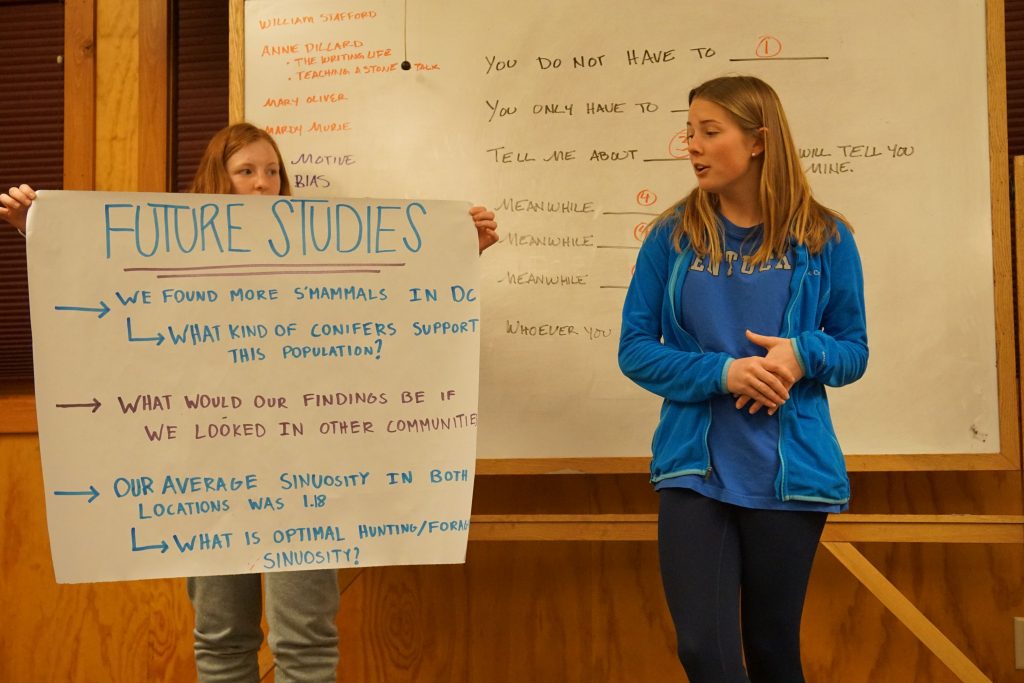 WILLIAM STAFFORD
ANNIE DILLARD
• THE WRITING LIFE
• TEACHING A STONE TO TALK
MARY OLIVER
MARDY MURIE
MOTIVE
BIAS
YOU DO NOT HAVE TO 1
YOU ONLY HAVE TO
TELL ME ABOUT 3 WILL TELL YOU
MINE.
MEANWHILE 4
MEANWHILE
MEANWHILE
WHOEVER YOU
FUTURE STUDIES
→ WE FOUND MORE S'MAMMALS IN DC
↳ WHAT KIND OF CONIFERS SUPPORT
THIS POPULATION?
→ WHAT WOULD OUR FINDINGS BE IF
WE LOOKED IN OTHER COMMUNITIE
→ OUR AVERAGE SINUOSITY IN BOTH
LOCATIONS WAS 1.18
↳ WHAT IS OPTIMAL HUNTING/FORAG
SINUOSITY?
ENTUCK